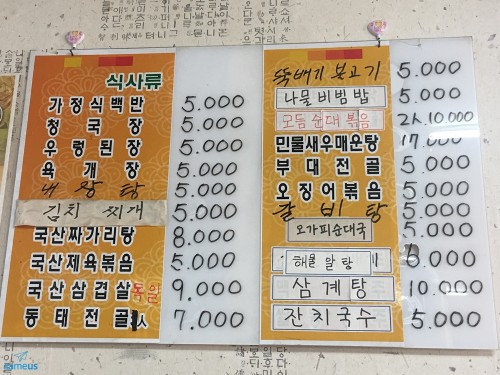 식사류
가정식백반 5.000
청국장 5.000
우렁된장 5.000
육개장 5.000
내장탕 5.000
김치찌개 5.000
국산짜가리탕 8.000
국산제육볶음 5.000
국산삼겹살 9.000
동태전골 1人 7.000
뚝배기 불고기 5.000
나물비빔밥 5.000
모듬순대볶음 2人 10.000
민물새우매운탕 17.000
부대전골 5.000
오징어볶음 5.000
갈비탕 5.000
오가피순대국 5.000
해물알탕 6.000
삼계탕 10.000
잔치국수 5.000